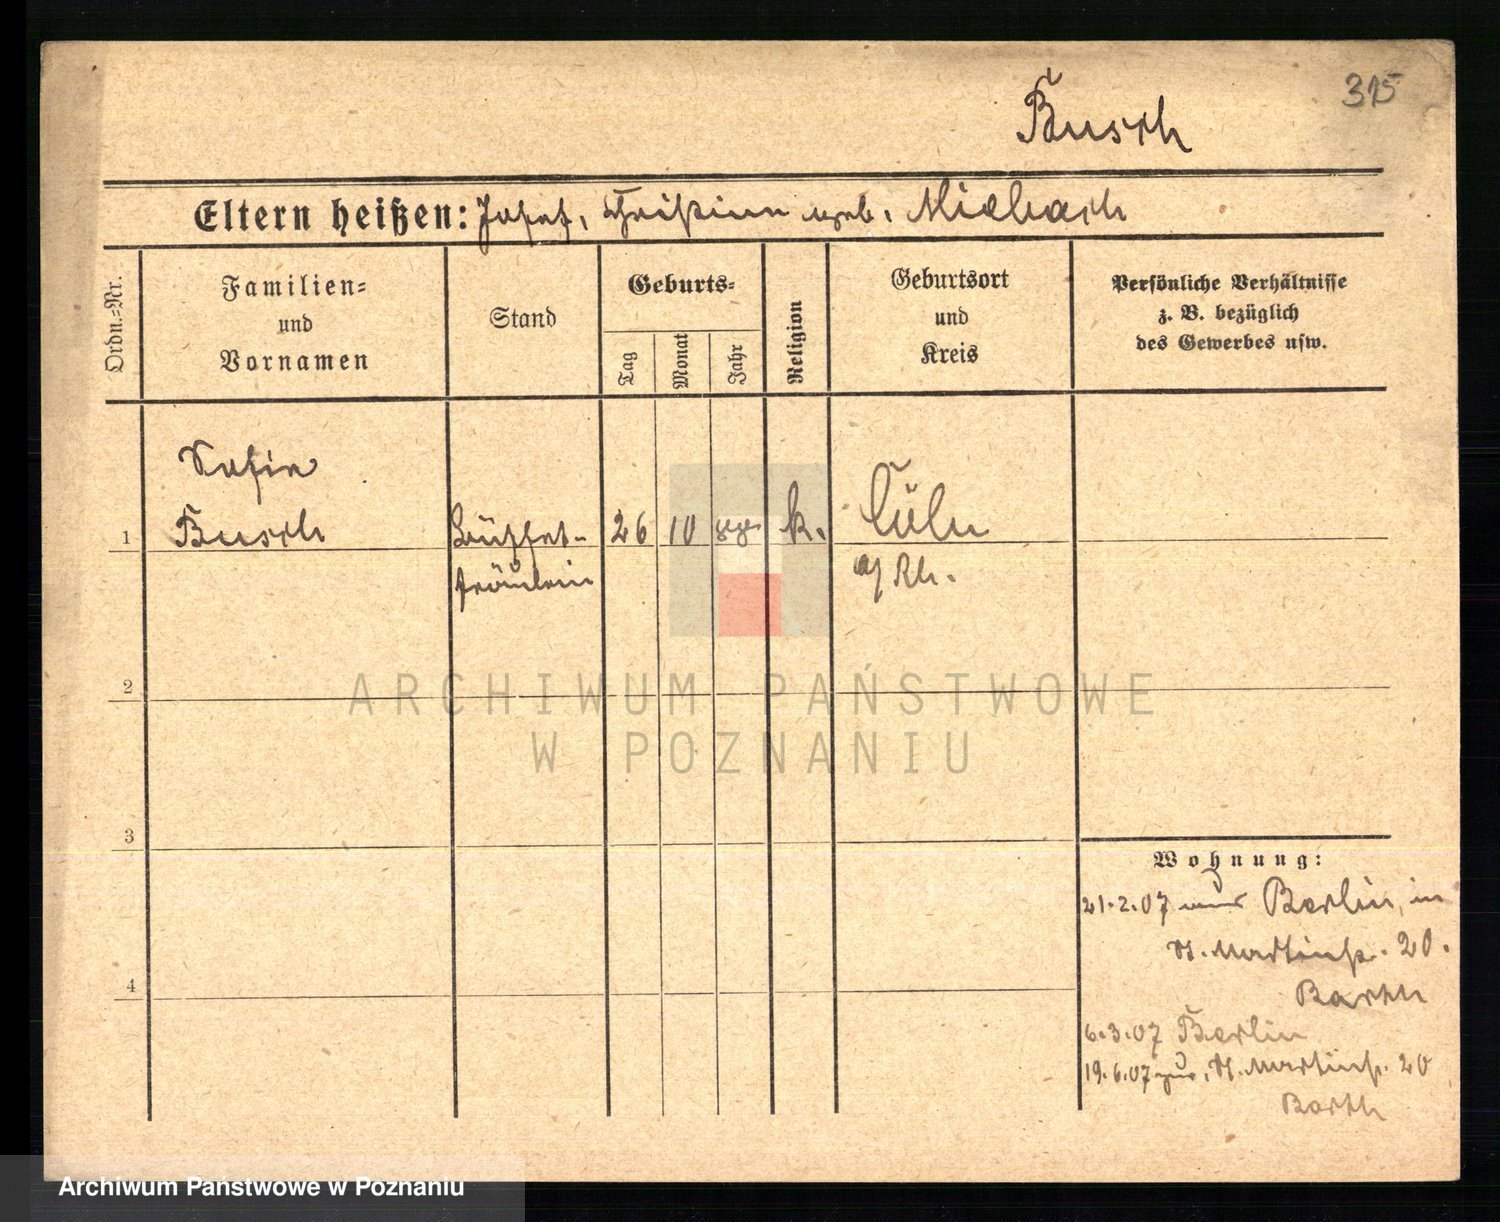 315
Busch
Eltern heißen: Josef, Christine geb. Miebach
Ordn.-Nr.
Familien-
und
Vornamen
Stand
Geburts-
Tag
Monat
Jahr
Religion
Geburtsort
und
Kreis
Persönliche Verhältnisse
z. B. bezüglich
des Gewerbes usw.
Sofie
1 Busch Büffet- 26 10 88 k. Cöln
fräulein a/Rh.
2
ARCHIWUM PAŃSTWOWE
W POZNANIU
3
Wohnung:
21.2.07 aus Berlin, in
St. Martinstr. 20.
Barth
4
6.3.07 Berlin
19.6.07 zur. St. Martinstr. 20
Barth
Archiwum Państwowe w Poznaniu